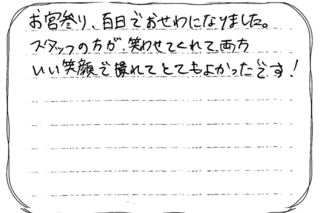 お宮参り、百日でおせわになりました。
スタッフの方が、笑わせてくれて両方
いい笑顔で撮れてとてもよかったです！